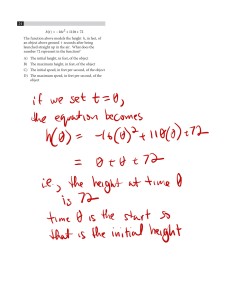 h(t) = −16t² + 110t + 72
The function above models the height h, in feet, of
an object above ground t seconds after being
launched straight up in the air. What does the
number 72 represent in the function?
A) The initial height, in feet, of the object
B) The maximum height, in feet, of the object
C) The initial speed, in feet per second, of the object
D) The maximum speed, in feet per second, of the
object
if we set t=0,
the equation becomes
h(0) = -16(0)²+110(0)+72
= 0+0+72
ie, the height at time 0
is 72
time 0 is the start so
that is the initial height